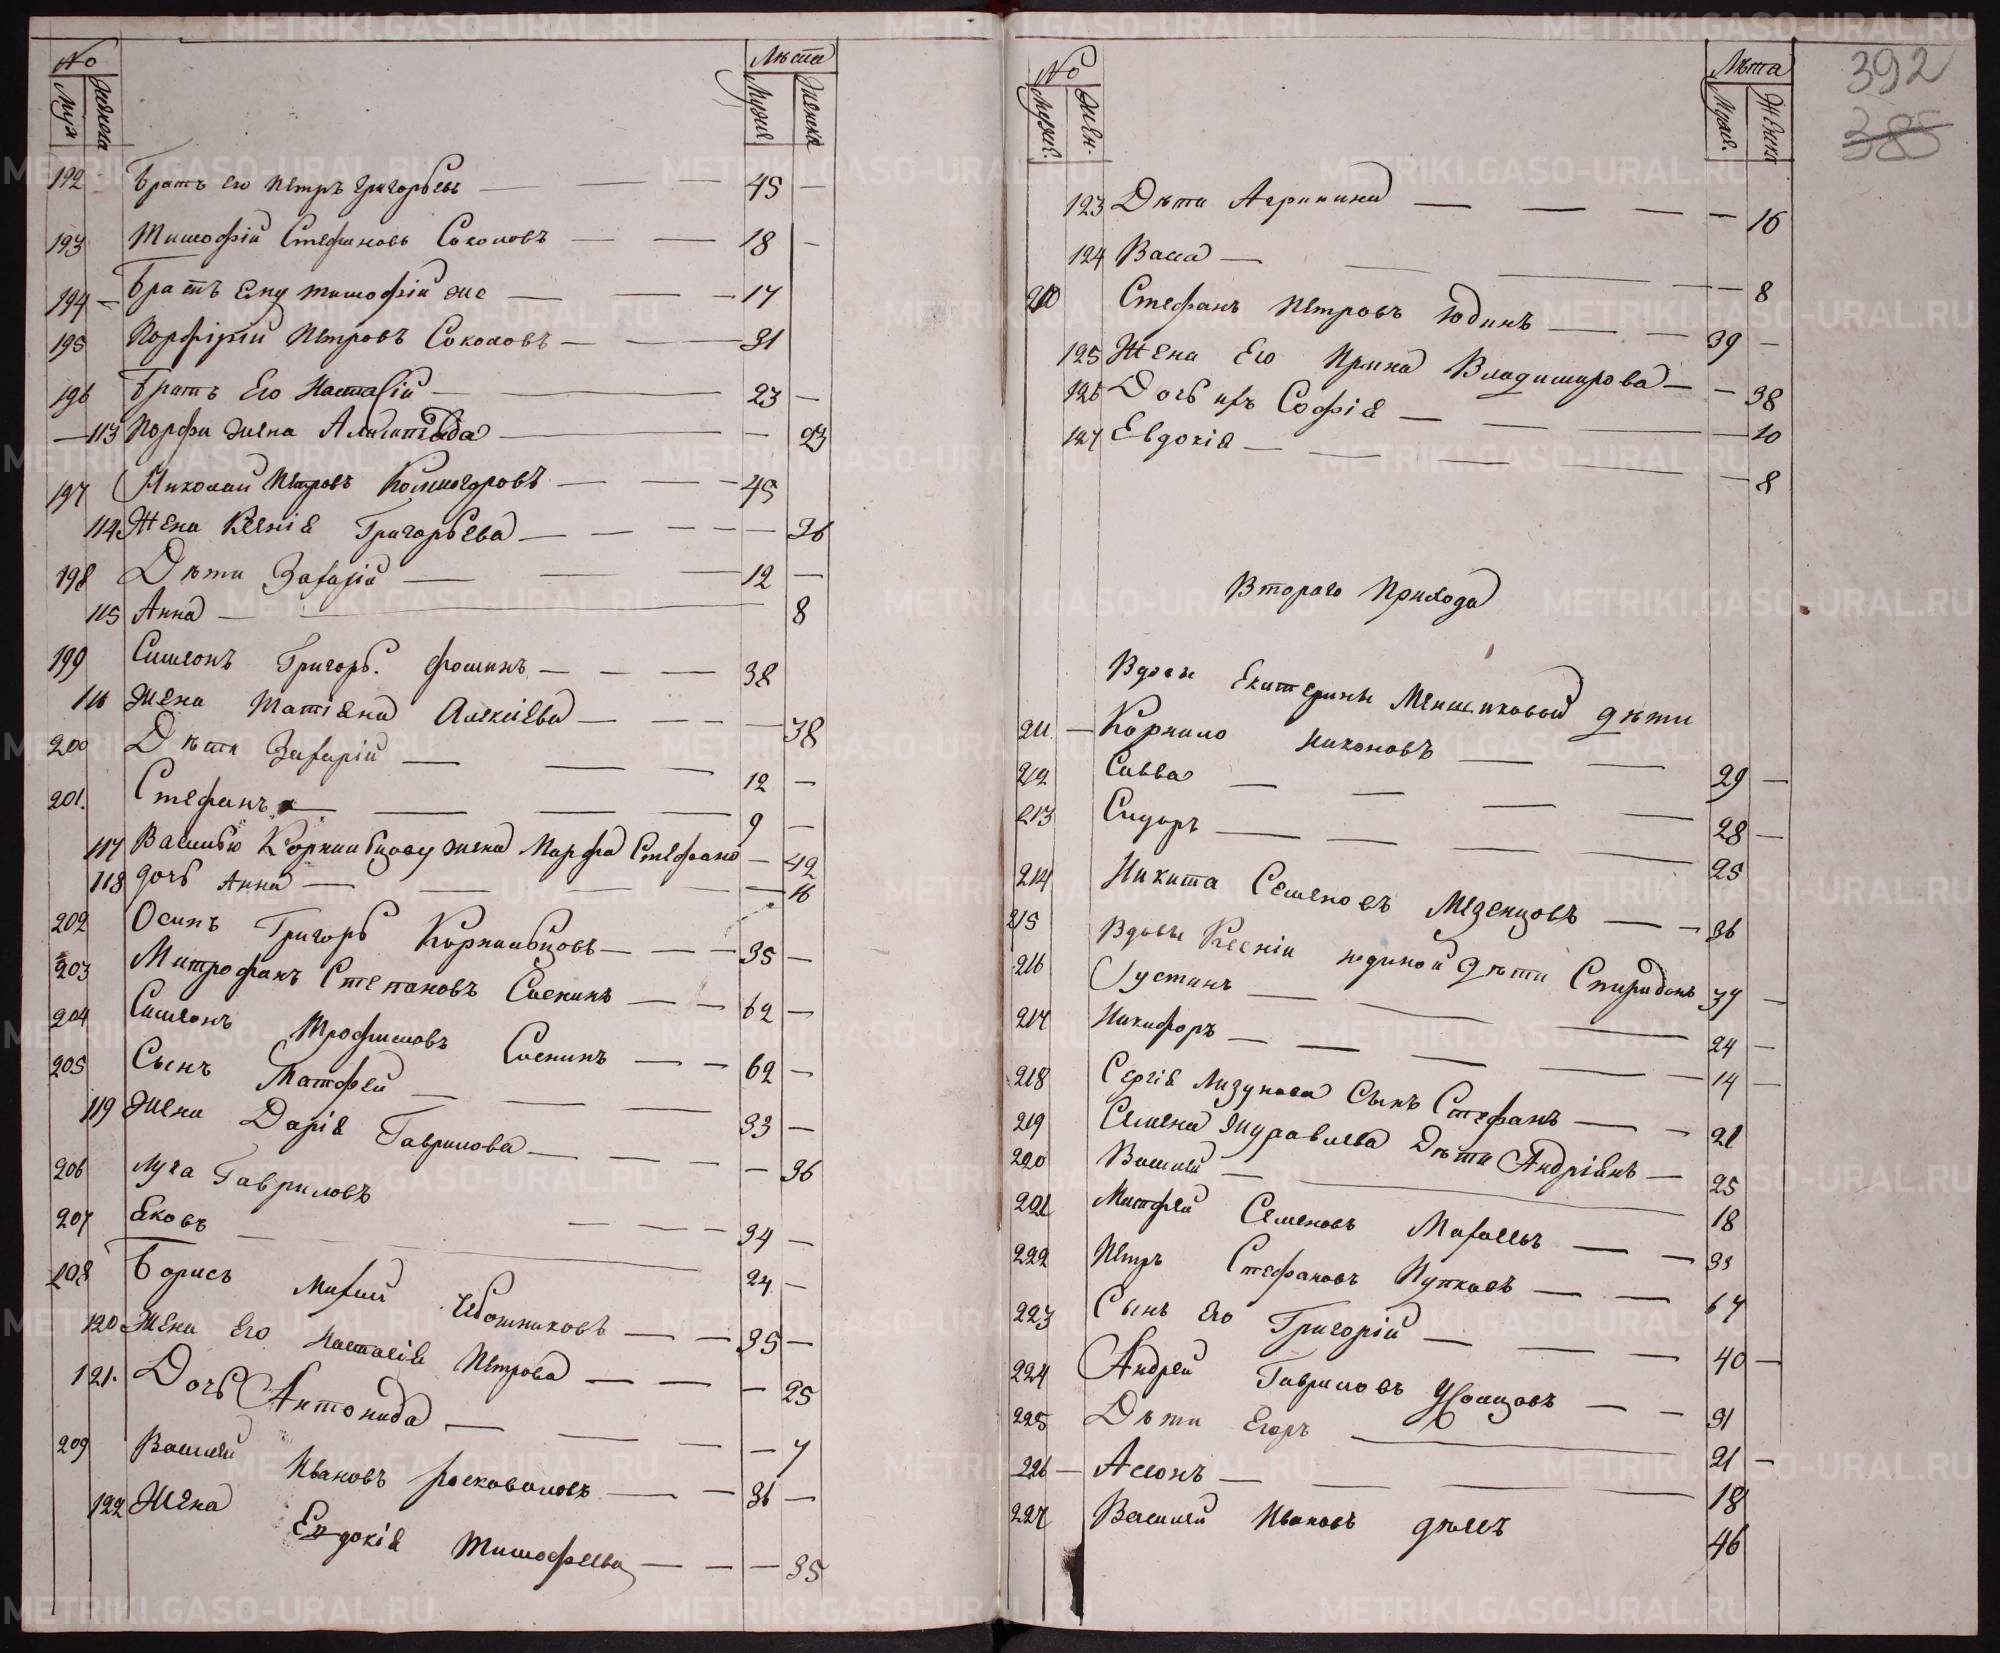 № Лѣта
Муж Женска Мужс Женска
192 Братъ его Петръ Григорьевъ — 45 —
193 Тимофій Стефановъ Соколовъ — 18 —
194 — Братъ Ему Тимофій же — 17
195 Порфирій Петровъ Соколовъ — 31
196 Братъ Его — 23 —
— 113 Порфи жена — 23
197 Николай Петровъ Колмогоровъ — 45
114 Жена Ксенія Григорьева — 36
198 Дѣти Захарій — 12 —
115 Анна — 8
199 Симеонъ Григорь. Фоминъ — 38
116 Жена Татіяна Алексіева — 38
200 Дѣти Захарій — 12 —
201. Стефанъ — 9 —
117 Василью Корнильцову жена Марфа Стефано — 42
118 дочь Анна — 16
202 Осипъ Григорь Корнильцовъ — 35 —
203 Митрофанъ Степановъ — 62 —
204 Симеонъ Трофимовъ — 62 —
205 Сынъ Матфей — 33 —
119 Жена Дарія Гаврилова — 36
206 Лука Гавриловъ — 34 —
207 Яковъ — 24 —
208 Борисъ Чеботниковъ — 35 —
120 Жена Его Настасія Петрова — 25
121. Дочь Антонида — 7
209 Василей Ивановъ — 36 —
122 Жена Евдокія Тимофеева — 35
№ Лѣта 392
Мужс. Женс. Мужс. Женска 385
123 Дѣти Агрипина — 16
124 Васса — 8
210 Стефанъ Петровъ Юдинъ — 39 —
125 Жена Его Ирина Владимирова — 38
126 Дочь ихъ Софія — 10
127 Евдокія — 8
Втораго Прихода
Вдовы Екатерины Меншиковой дѣти
211. — Корнило Никоновъ — 29 —
212 Савва — 28 —
213 Сидоръ — 25
214 Никита Семеновъ Мезенцовъ — 36
215 Вдовы Ксеніи Юдиной дѣти Спиридонъ 37 —
216 Густинъ — 24 —
217 Никифоръ — 14 —
218 Сергія Лизунова Сынъ Стефанъ — 21
219 Семена Журавлева Дѣти Андріянъ — 25
220 Василей — 18
221 Матфей Семеновъ — 33
222 Петръ Стефановъ Пупковъ — 67
223 Сынъ Его Григорій — 40 —
224 Андрей Гавриловъ — 31
225 Дѣти Егоръ — 21 —
226 — Асонъ — 18
227 Василей Ивановъ — 46
METRIKI.GASO-URAL.RU